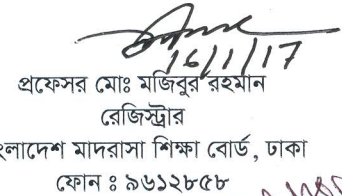 16/1/17
প্রফেসর মোঃ মজিবুর রহমান
রেজিস্ট্রার
মাদরাসা শিক্ষা বোর্ড, ঢাকা
ফোন ঃ ৯৬১২৮৫৮